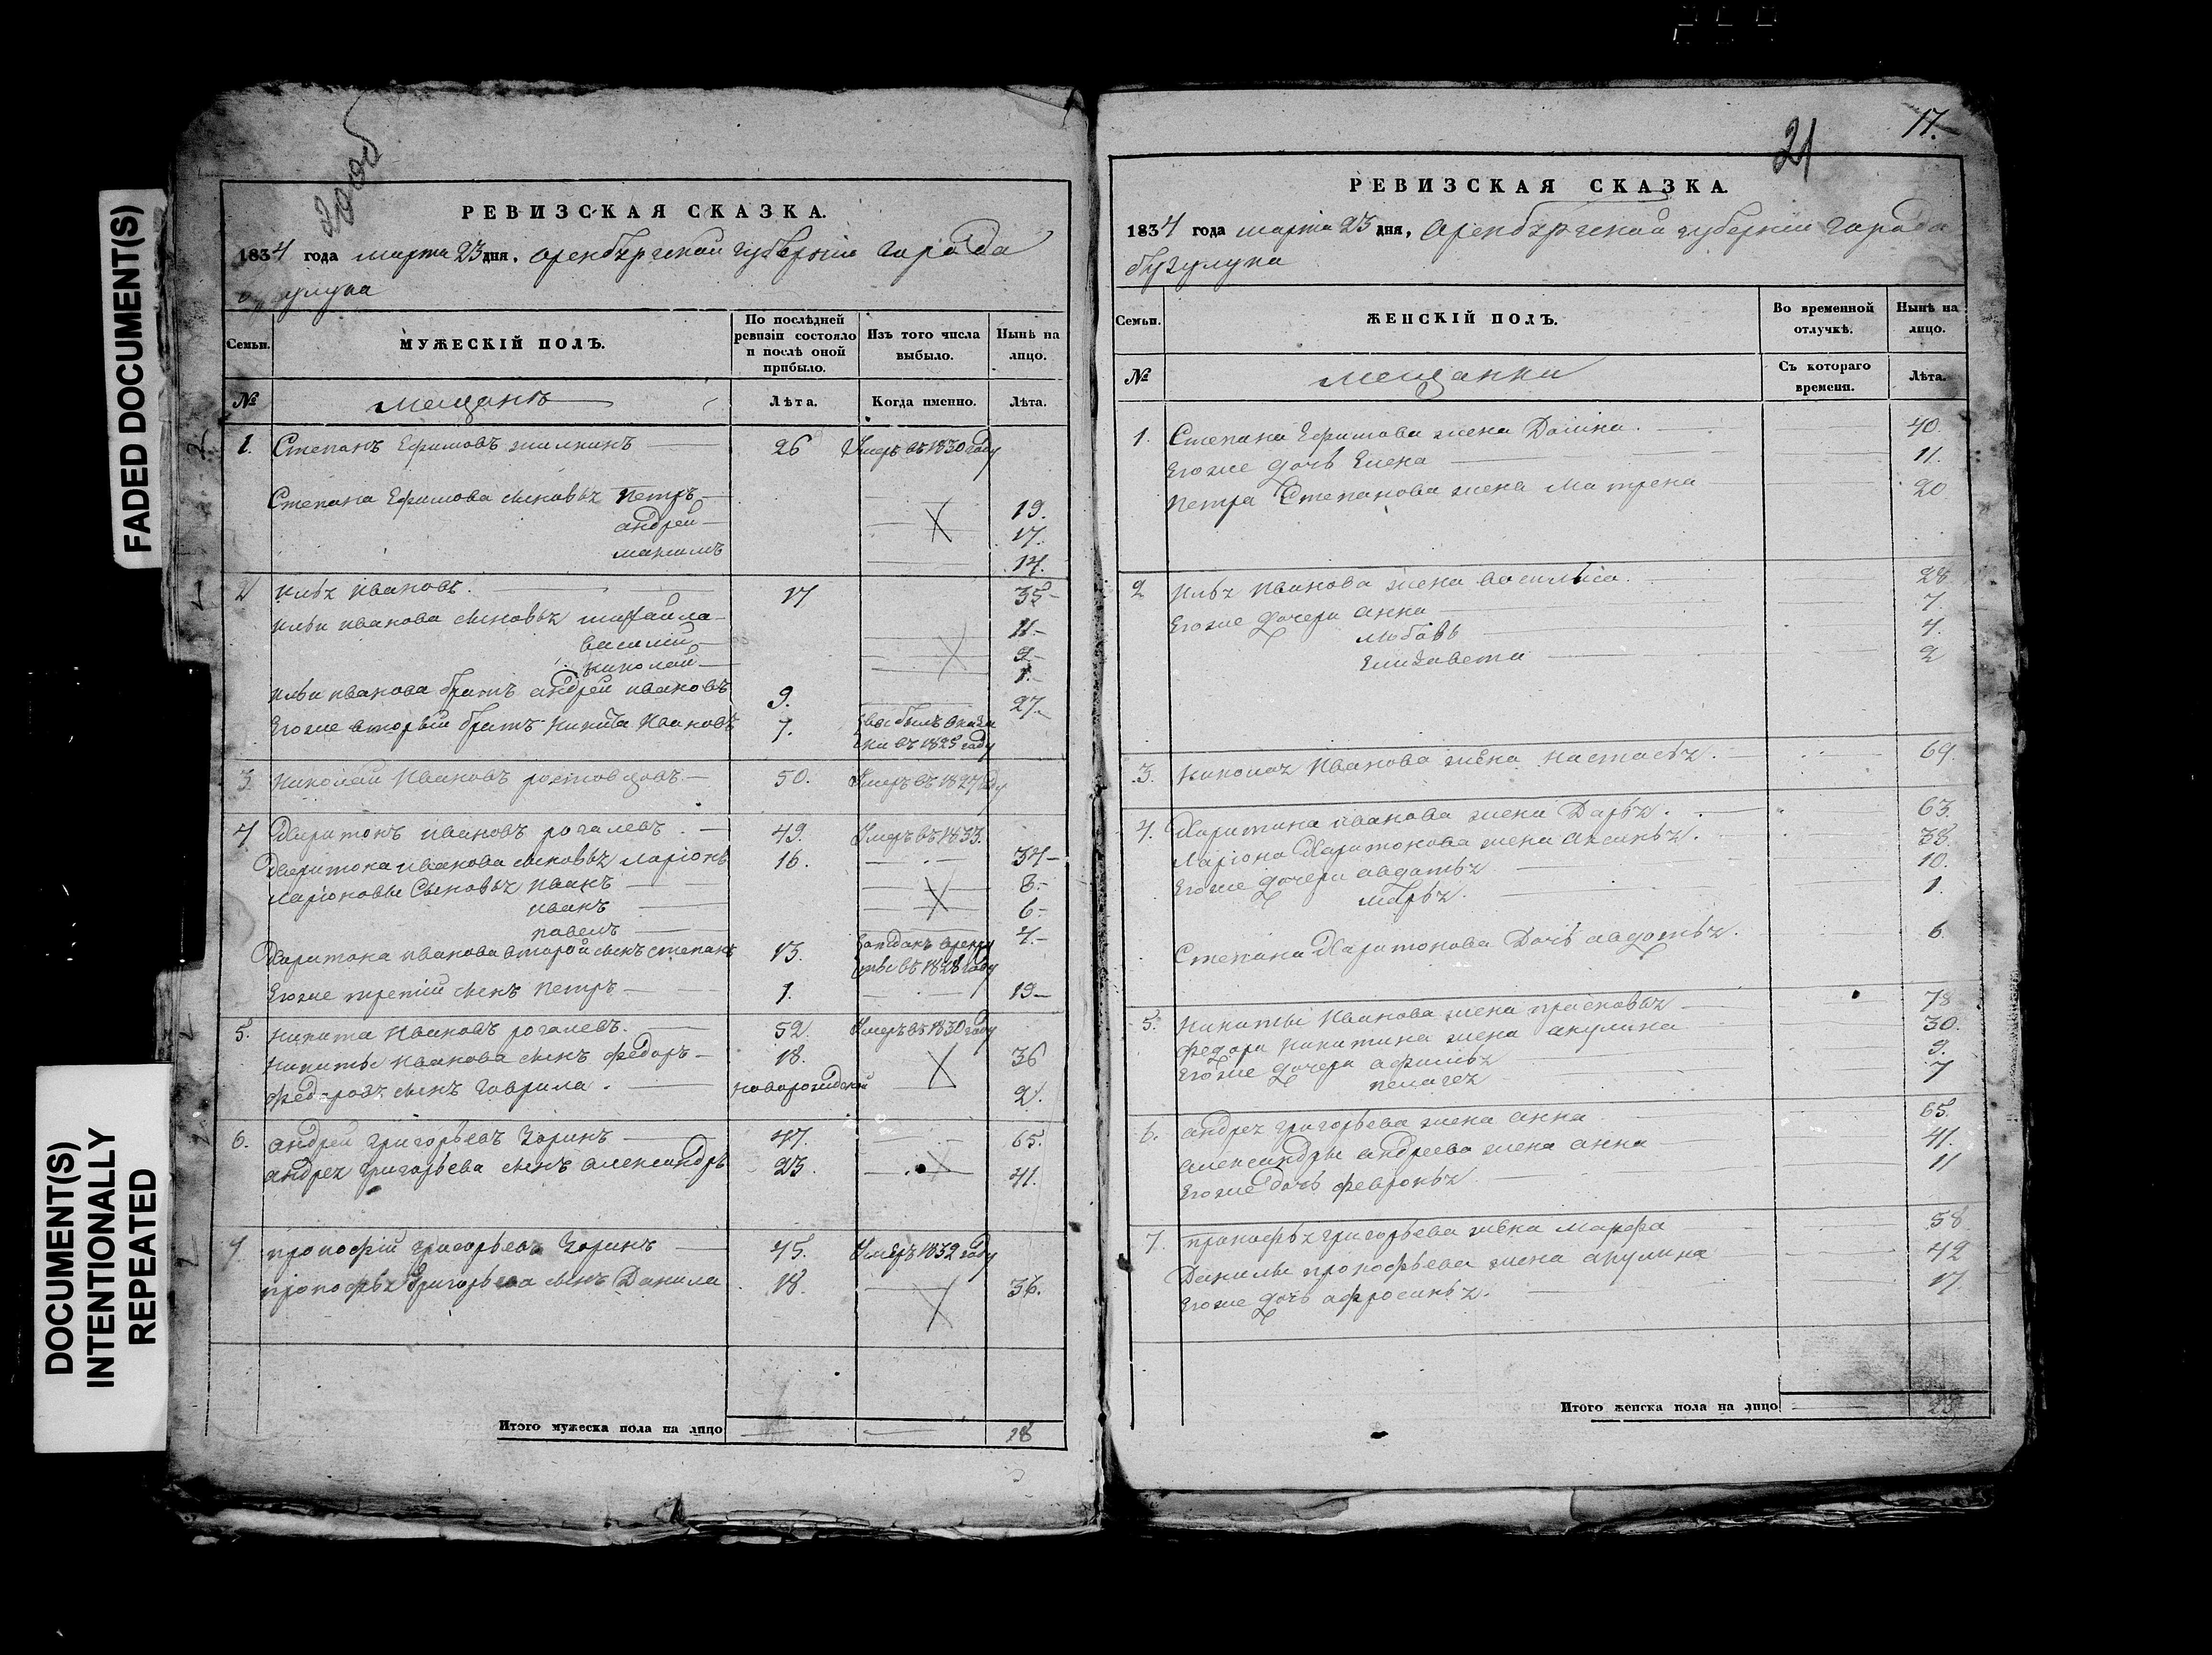 FADED DOCUMENT(S)
DOCUMENT(S)
INTENTIONALLY
REPEATED
РЕВИЗСКАЯ СКАЗКА.
1834 года марта 23 дня, оренбургской губернiи города
бузулука
Семьи.
МУЖЕСКІЙ ПОЛЪ.
По послѣдней ревизіи состояло и послѣ оной прибыло.
Изъ того числа выбыло.
Нынѣ на лицо.
№
мещанъ
Лѣта.
Когда именно.
Лѣта.
1. Степанъ Ефимовъ жилкинъ 26 Умеръ въ 1830 году
Степана Ефимова сыновья Петръ 19.
андрей 17.
14.
2 илья ивановъ. 17 35
ильи иванова сыновья михайла 11
василий 9
николай 1
ильи иванова братъ андрей ивановъ 9. 27
Егоже вторый братъ Никита Ивановъ 7.
въ 1825 году
3. Николай Ивановъ ростовцовъ 50. Умеръ въ 1827 году
4 Харитонъ ивановъ рогалевъ. 49. Умеръ въ 1833.
Харитона иванова сыновья ларiонъ 16. 34
ларiоновы Сыновья иванъ 8
иванъ 6
павелъ 4
Харитона иванова второй сынъ степанъ 13.
въ 1828 году
Егоже третiй сынъ Петръ 1. 19
5. Никита Ивановъ рогалевъ. 52. Умеръ въ 1830 году
Никиты Иванова сынъ федоръ 18. 36
федоровъ сынъ гаврила. новорожденой 2.
6. андрей григорьевъ Зоринъ 47. 65.
андрея григорьева сынъ александръ 23. 41.
7. прокофiй григорьевъ Зоринъ 45. Умеръ 1832 году
прокофья Григорьева сынъ Данила 18. 36.
Итого мужеска пола на лицо 18
17.
21
РЕВИЗСКАЯ СКАЗКА.
1834 года марта 23 дня, Оренбургской губернiи города
бузулука
Семьи.
ЖЕНСКІЙ ПОЛЪ.
Во временной отлучкѣ.
Нынѣ на лицо.
№
мещанки
Съ котораго времени.
Лѣта.
1. Степана Ефимова жена Домна. 40.
Егоже дочь Елена 11.
Петра Степанова жена Матрена 20
2 Илья Иванова жена василиса. 28
Егоже дочери анна 7.
любовь 4.
Елизавета 2
3. николая Иванова жена настасья. 69.
4. Харитина иванова жена Дарья. 63.
Ларiона Харитонова жена аксинья. 38.
Егоже дочери авдотья 10.
марья. 1.
Степана Харитонова Дочь авдотья. 6.
5. Никиты Иванова жена прасковья 78
федора никитина жена акулина 30.
Егоже дочери афимья 9.
пелагея 7
6. андрея григорьева жена анна 65.
александры андреева жена анна 41.
Егоже дочь февронья 11
7. прокофья григорьева жена марфа 58
Данилы прокофьева жена акулина 42
Егоже дочь афросинья. 17.
Итого женска пола на лицо